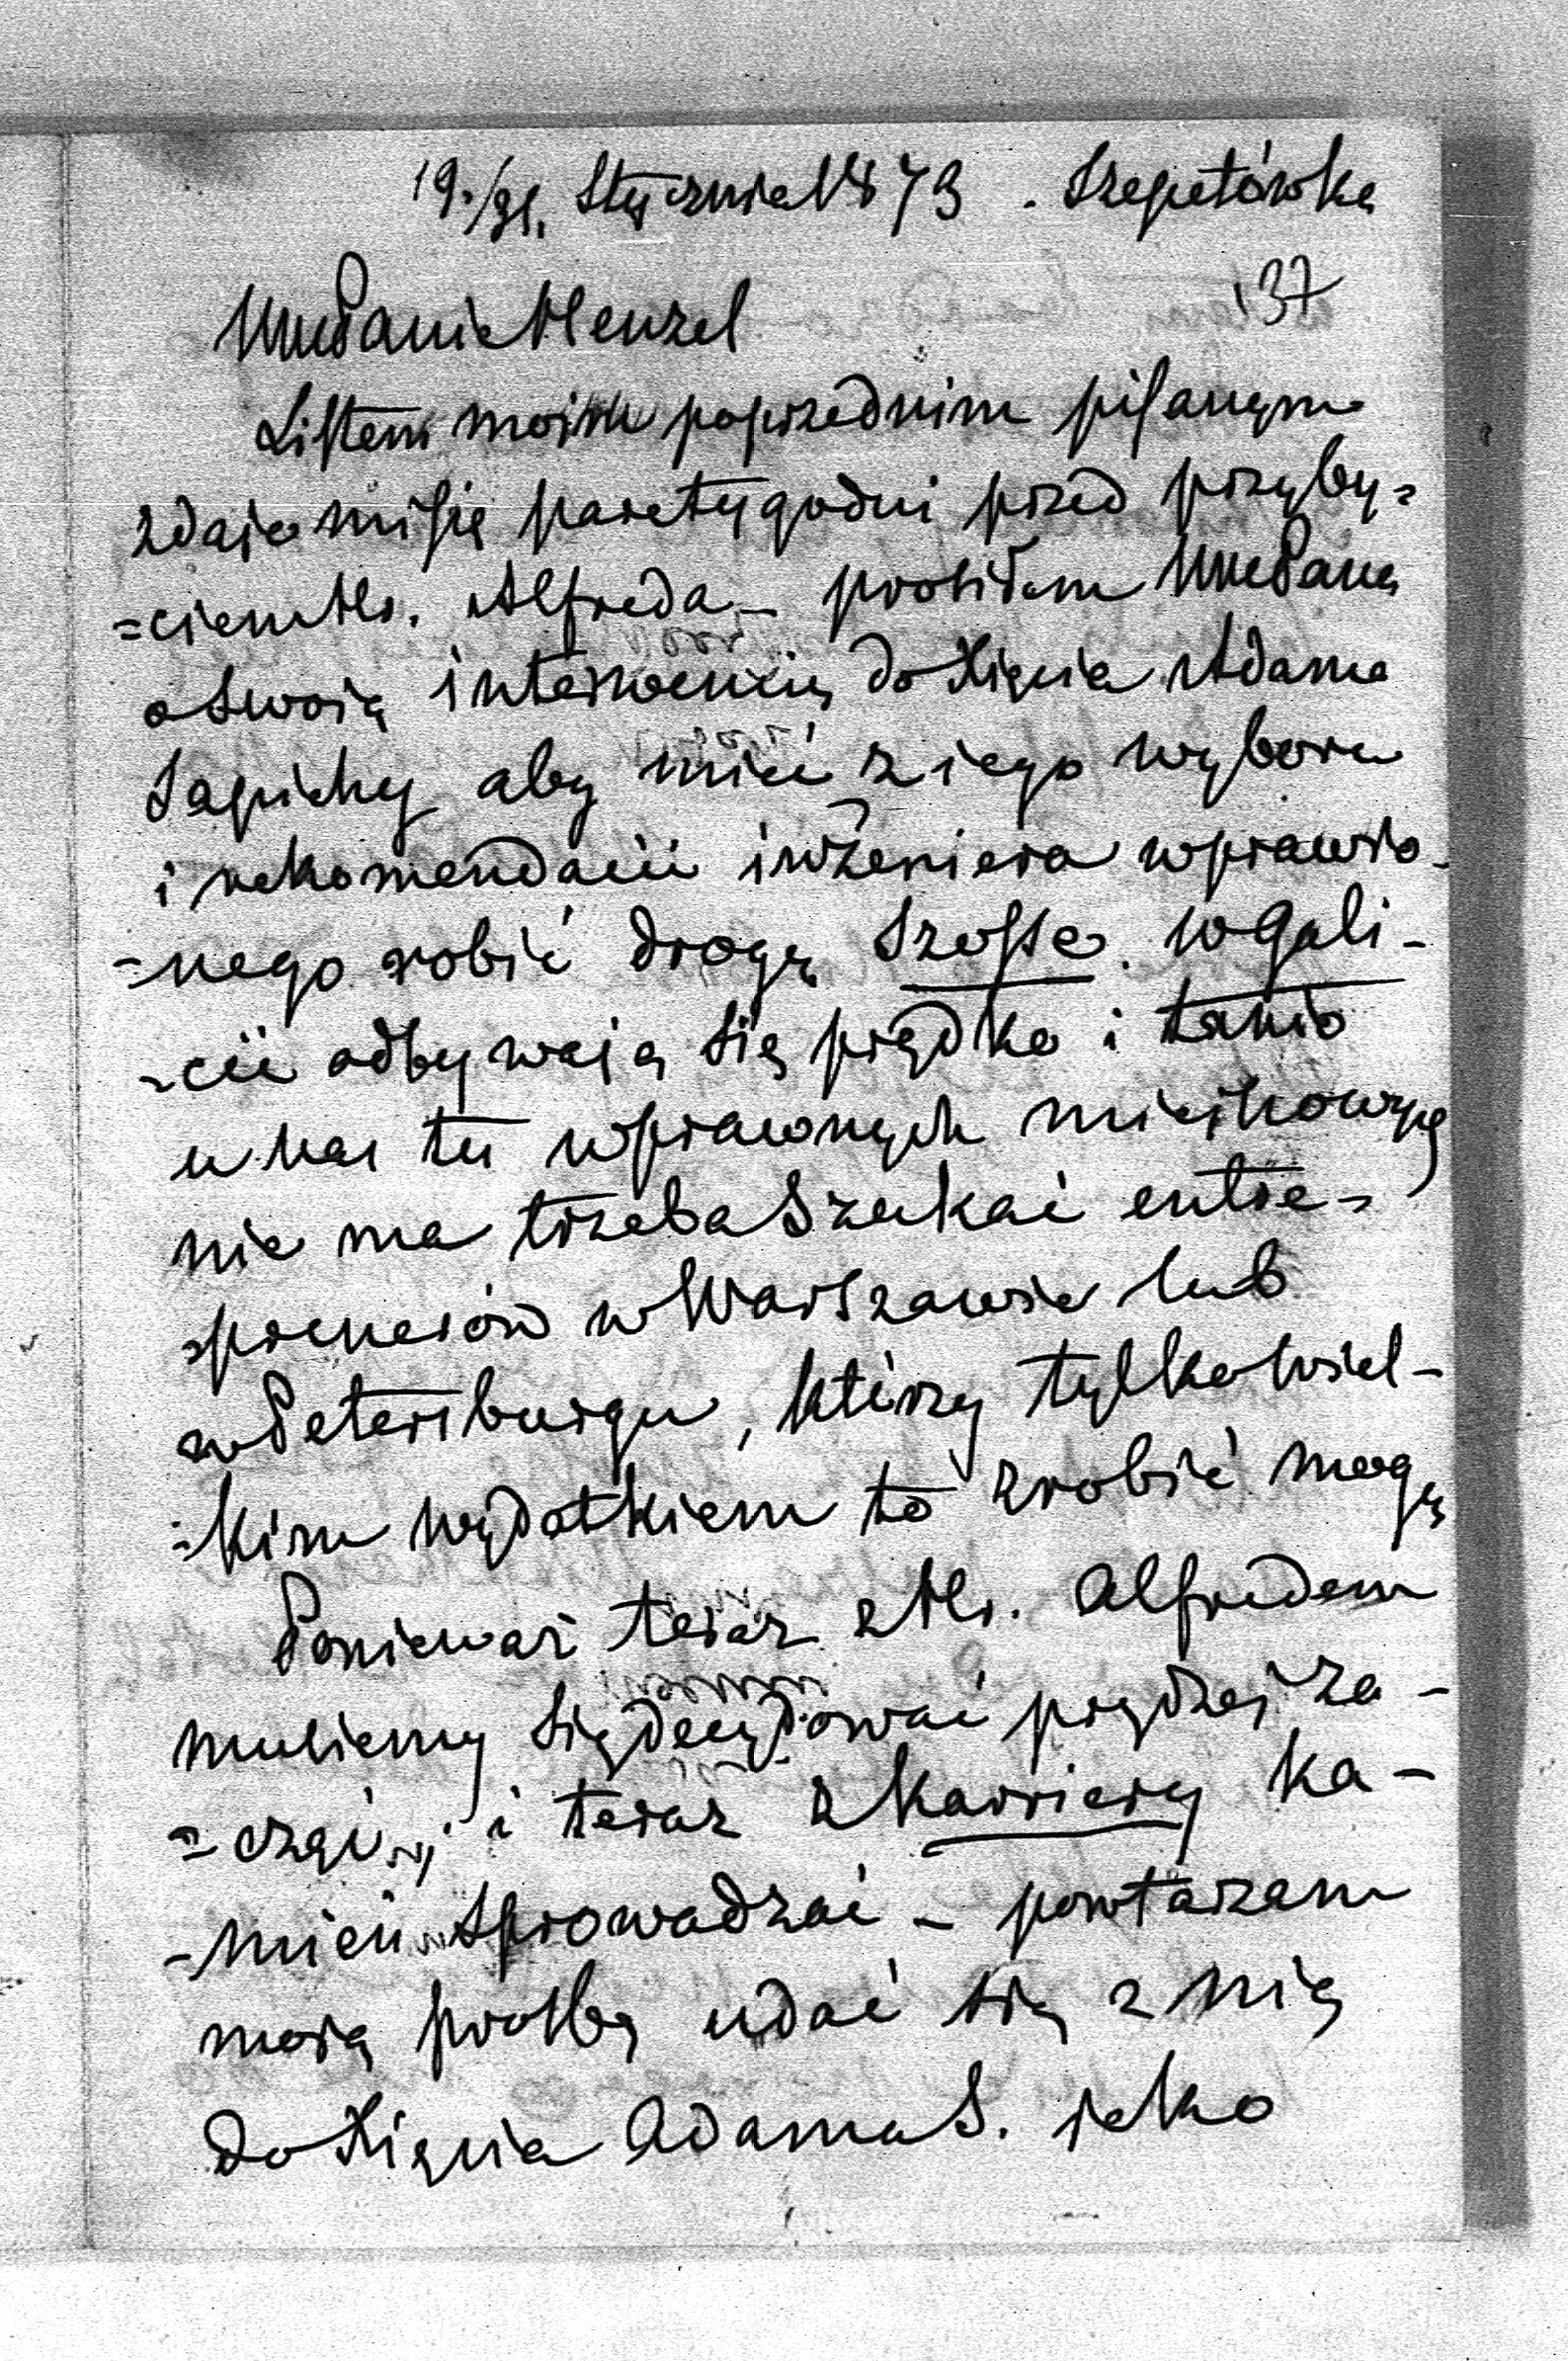 19./31. Stycznia 1873. Szepetówka
137
WmPanie Henzel
Listem moim poprzednim pisanym
zdaie mi się parę tygodni przed przyby=
=ciem Hr. Alfreda – prosiłem WmPana
o swoią interwencią do Xięcia Adama
Sapiehy aby mieć z iego wyboru
i rekomendacii inżeniera wpraw-
=nego robić drogę Szosse. w Gali-
=cii odbywaią się prędko i tanio
u nas tu wprawnych mieiscowych
nie ma trzeba szukać entre-
=prenerów w Warszawie lub
w Petersburgu, którzy tylko wiel-
=kim wydatkiem to zrobić mogą
Ponieważ teraz z Hr. Alfredem
musiemy się decydować prędzej za-
=cząć, i teraz z karriery ka-
-mień sprowadzać – powtarzam
moią prośbę udać się z nią
do Xięcia Adama S. jako